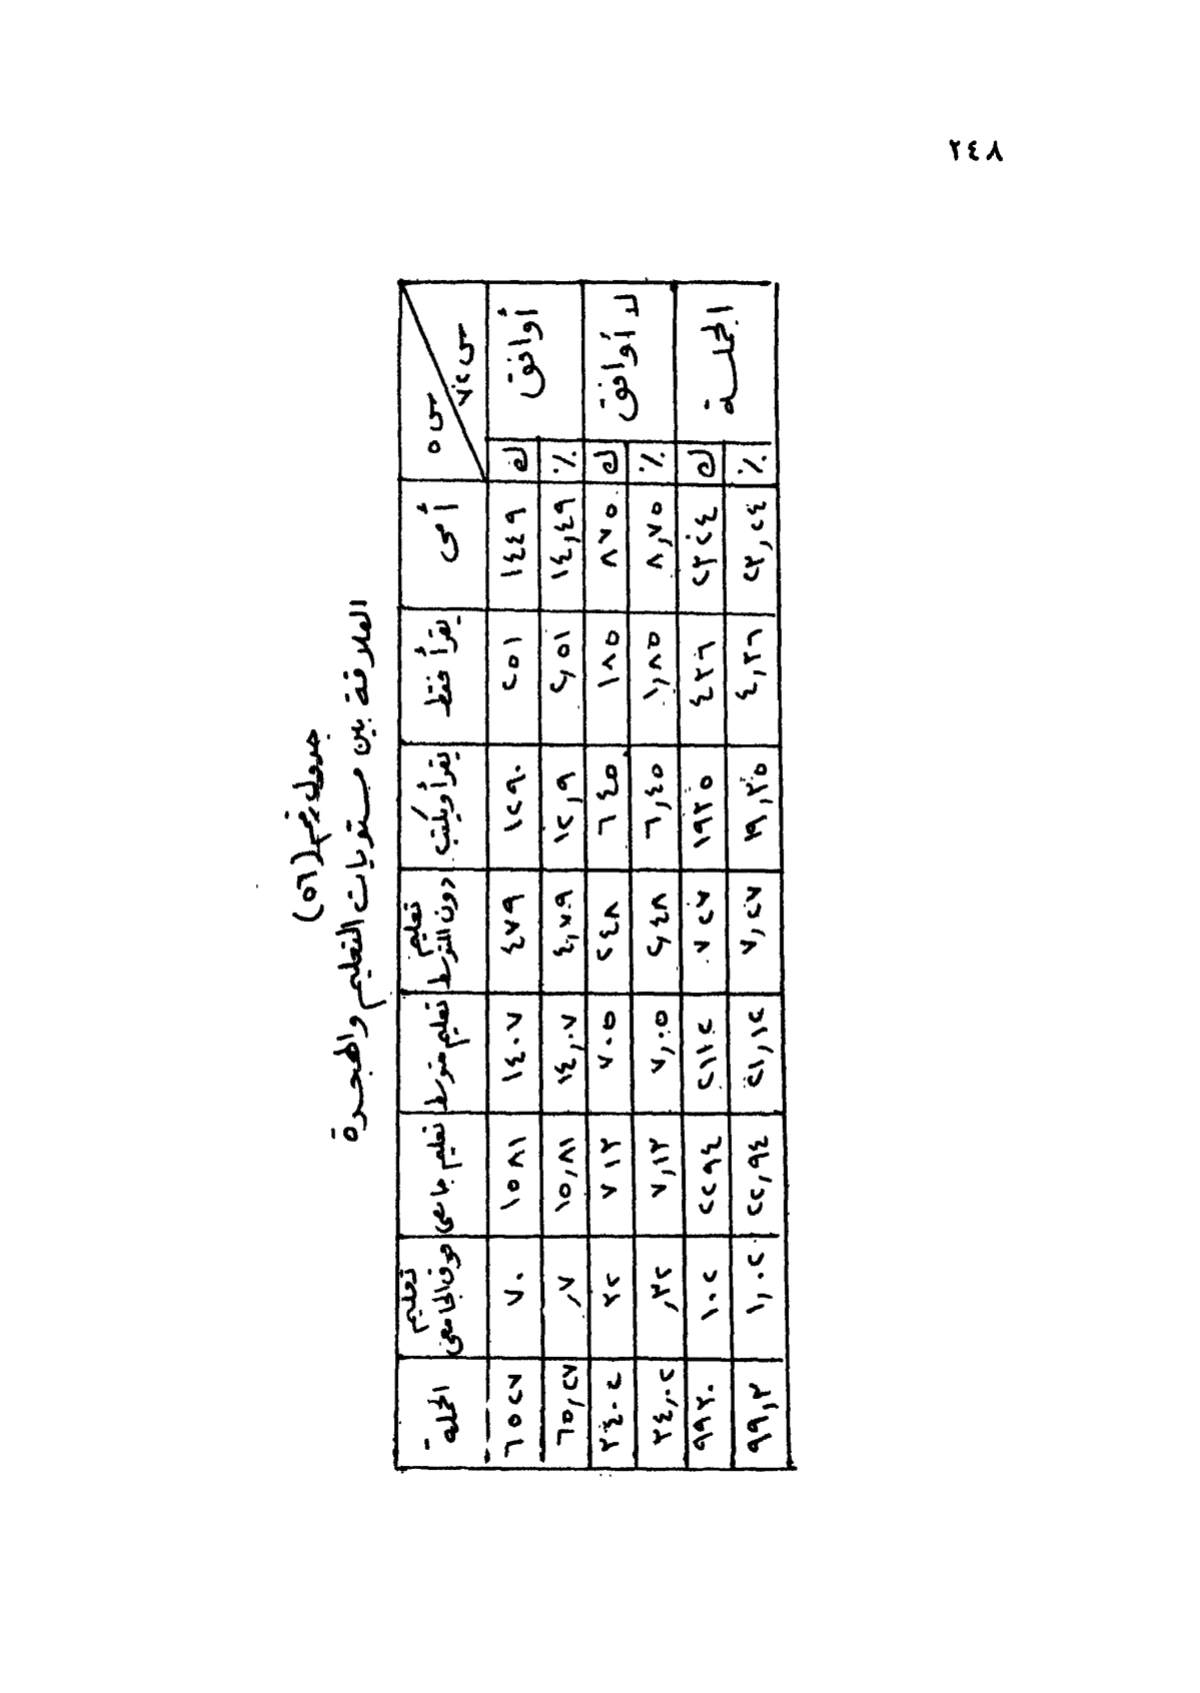 ٢٤٨
جدول رقم (٥٦)
العلاقة بين مستويات التعليم والهجرة
س ٥ س أمى يقرأ فقط يقرأ ويكتب تعليم دون المتوسط تعليم متوسط تعليم جامعى تعليم فوق الجامعى الجملة
أوافق ك ١٤٤٩ ٢٥١ ١٢٩٠ ٤٧٩ ١٤٠٧ ١٥٨١ ٧٠ ٦٥٢٧
٪ ١٤,٤٩ ٢,٥١ ١٢,٩ ٤,٧٩ ١٤,٠٧ ١٥,٨١ ,٧ ٦٥,٢٧
لا أوافق ك ٨٧٥ ١٨٥ ٦٤٥ ٢٤٨ ٧٠٥ ٧١٣ ٣٢ ٣٤٠٢
٪ ٨,٧٥ ١,٨٥ ٦,٤٥ ٢,٤٨ ٧,٠٥ ٧,١٣ ,٣٢ ٣٤,٠٢
الجملة ك ٢٣٢٤ ٤٣٦ ١٩٣٥ ٧٢٧ ٢١١٢ ٢٢٩٤ ١٠٢ ٩٩٣٠
٪ ٢٣,٢٤ ٤,٣٦ ١٩,٣٥ ٧,٢٧ ٢١,١٢ ٢٢,٩٤ ١,٠٢ ٩٩,٣